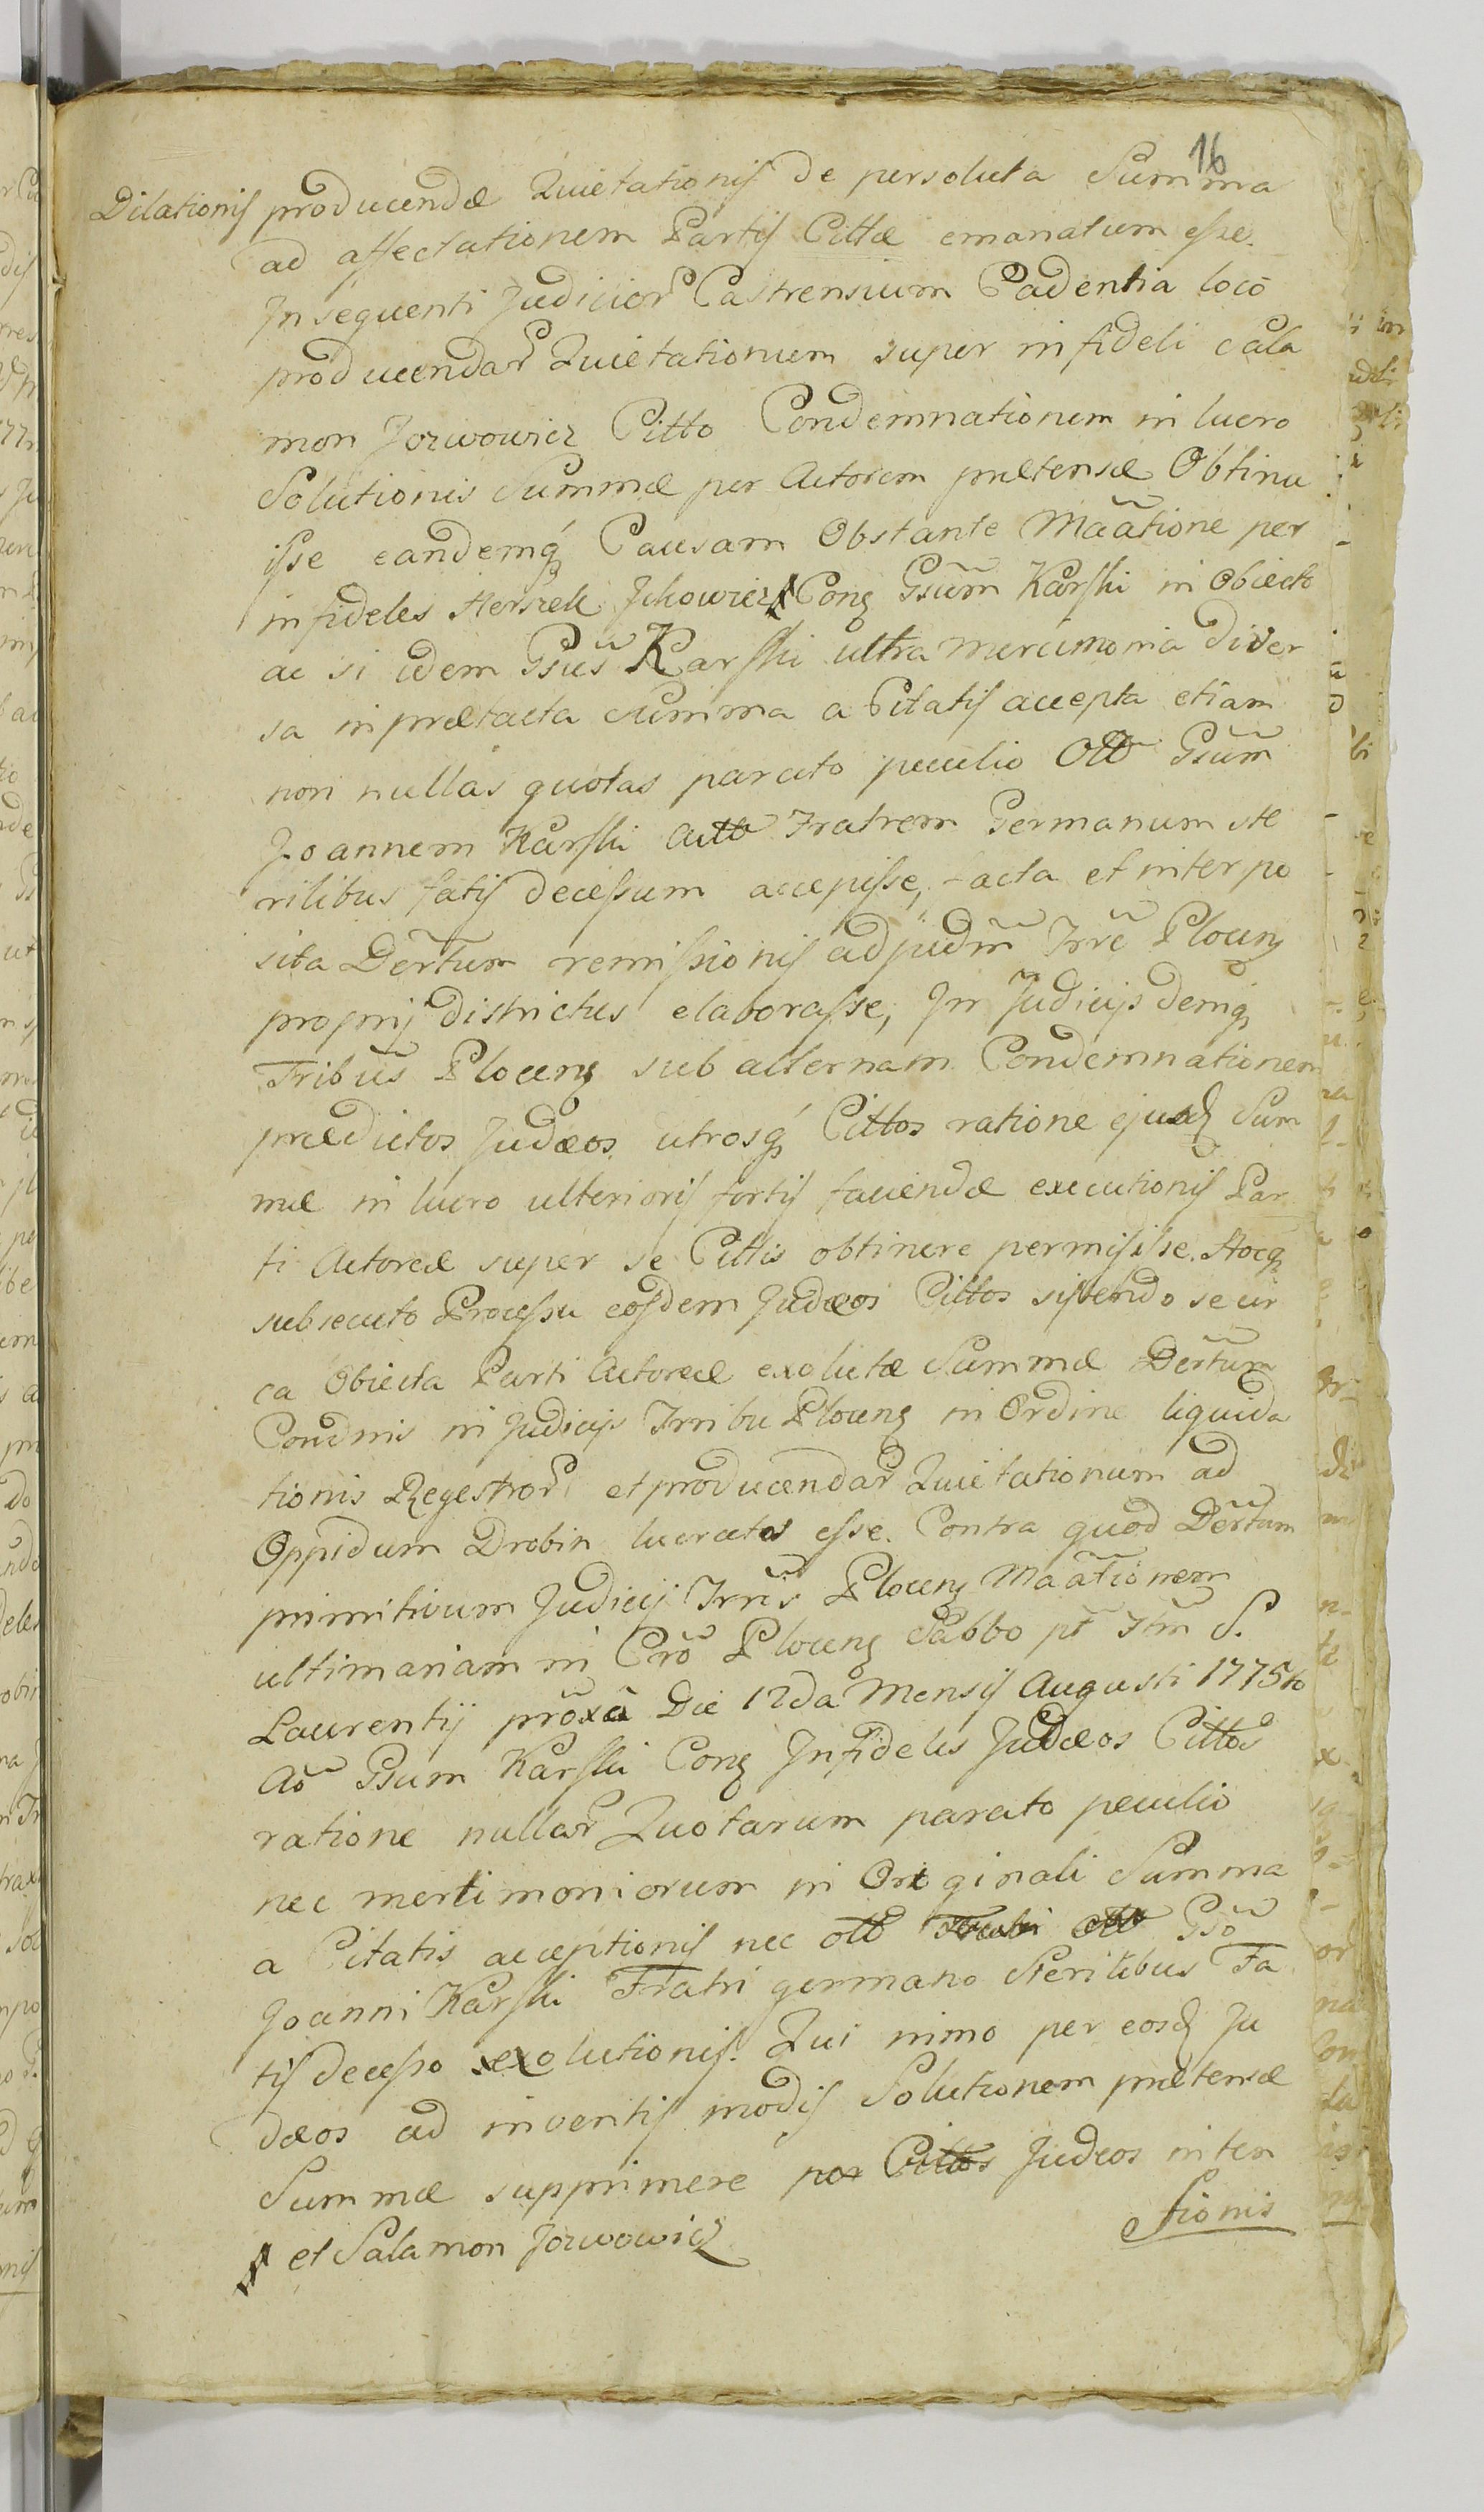 16
Dilationis producendæ Quietationis de persoluta Summa
ad affectationem Partis Cittæ emanatum esse.
In sequenti Judicior Castrensium Cadentia loco
producendar Quietationum super infideli Sala
mon Jozwowicz Citto Condemnationem in lucro
Solutionis Summæ per Actorem prætensæ Obtinu
isse eandemq́ Causam Obstante Mããtione per
infideles Herszek Ickowicz Conq Gsum Karski in Obiecto
ac si idem Gsus Karski ultra mercimonia diver
sa in prætacta Summa a Citatis accepta etiam
non nullas quotas parato peculio Olb Gsum
Joannem Karski Actto Fratrem Germanum ste
rilibus fatis decessum accepisse, facta et interpo
sita Dertum remissionis ad judm Trre Plocens
proprij districtus elaborasse, In Judicijs deniq
Tribus Plocens sub alternam Condemnationem
prædictos Judæos utrosq́ Cittos ratione ejusd Sum
mæ in lucro ulterioris fortis faciendæ executionis Par
ti Actoreæ super se Cittis obtinere permisisse. Hocq
subsecuto Processu eosdem Judæos Cittos sistendo se cir
ca Obiecta Parti Actoreæ exolutæ Summæ Dertum
Condnis in Judicijs Trribu Plocens in Ordine liquida
tionis Regestror et producendar Quietationum ad
Oppidum Drobin lucratos esse. Contra quod Dertum
primitivum Judicij Trris Plocens Mããtionem
ultimariam in Cro Plocens Sabbo pt Ftm S.
Laurentij proxa Die 12da Mensis Augusti 1775to
Ao Gsum Karski Conq Infideles Judæos Cittos
ratione nullar Quotarum parato peculio
nec mertimoniorum in Originali Summa
a Citatis acceptionis nec olb Gso
Joanni Karski Fratri germano Sterilibus Fa
tis decesso exolutionis. Qui nimo per eosd Ju
dæos ad inventis modis Solutionem prætensæ
Summæ supprimere per Cittos Judeos inten
tionis
et Salamon Jozwowicz